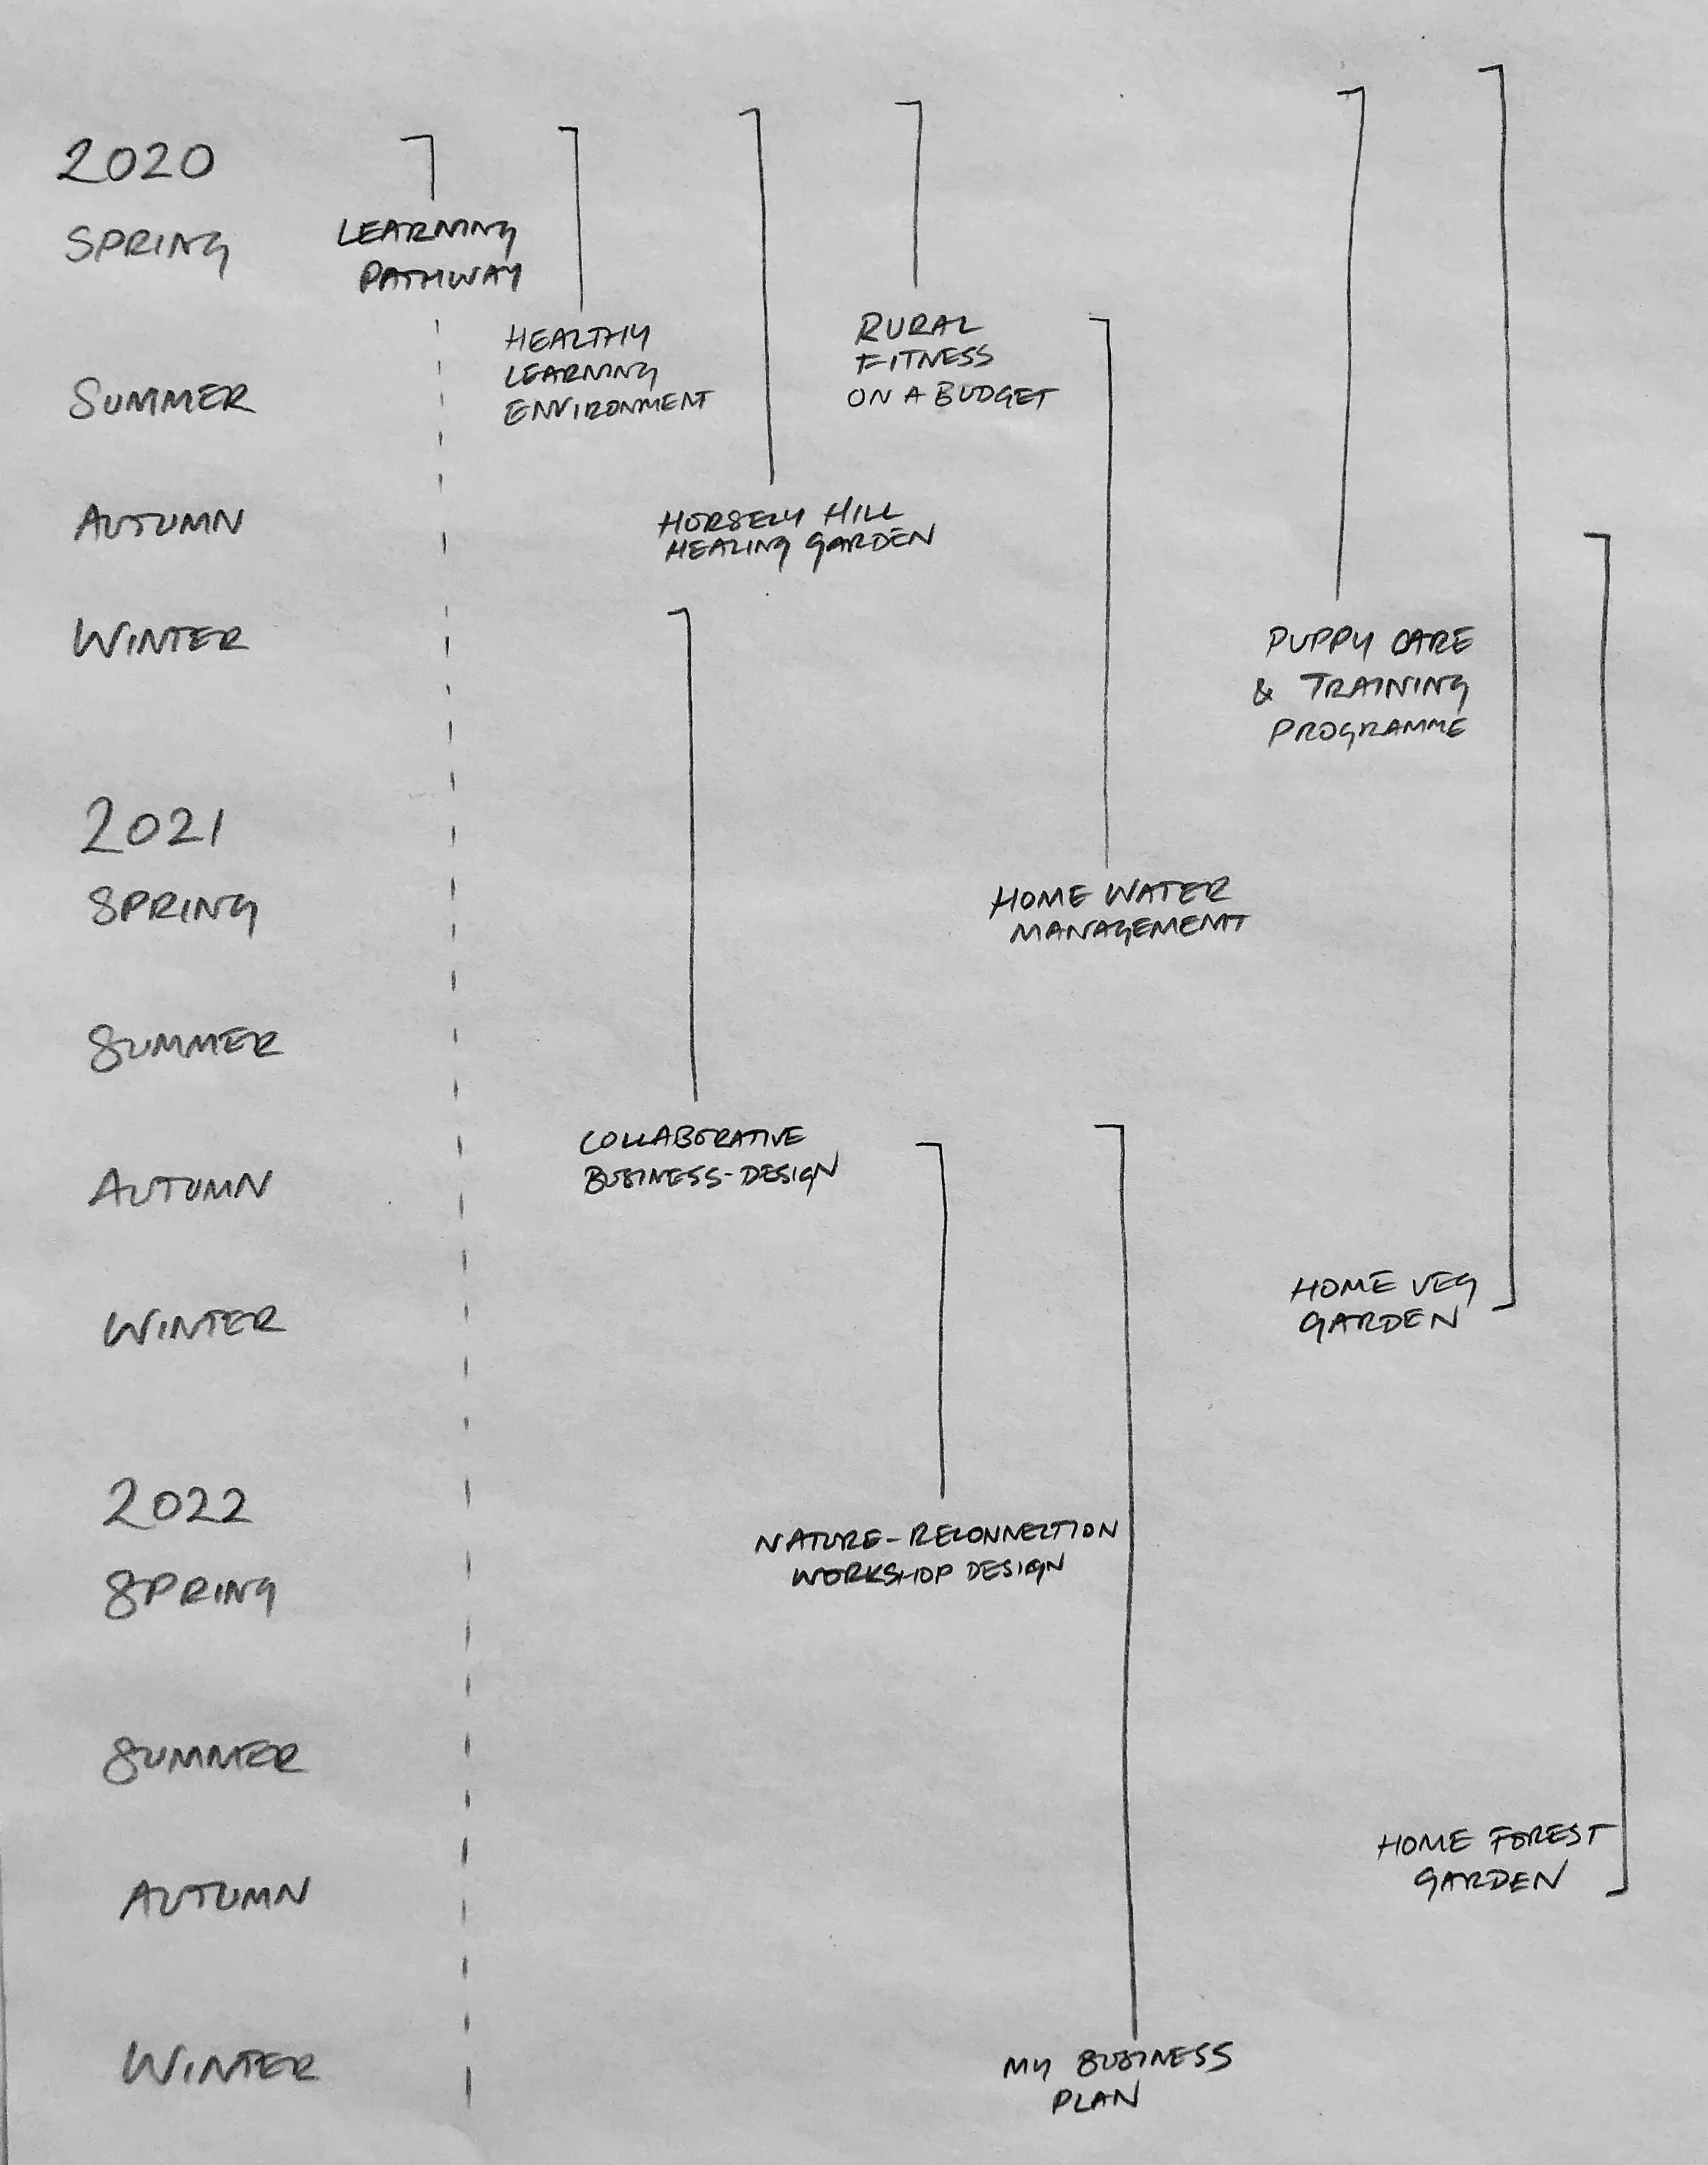 2020
SPRING
LEARNING
PATHWAY
HEALTHY
LEARNING
ENVIRONMENT
RURAL
FITNESS
ON A BUDGET
SUMMER
AUTUMN
HORSELY HILL
HEALING GARDEN
WINTER
PUPPY CARE
& TRAINING
PROGRAMME
2021
SPRING
HOME WATER
MANAGEMENT
SUMMER
COLLABORATIVE
BUSINESS-DESIGN
AUTUMN
HOME VEG
GARDEN
WINTER
2022
NATURE-RECONNECTION
WORKSHOP DESIGN
SPRING
SUMMER
HOME FOREST
GARDEN
AUTUMN
WINTER
MY BUSINESS
PLAN